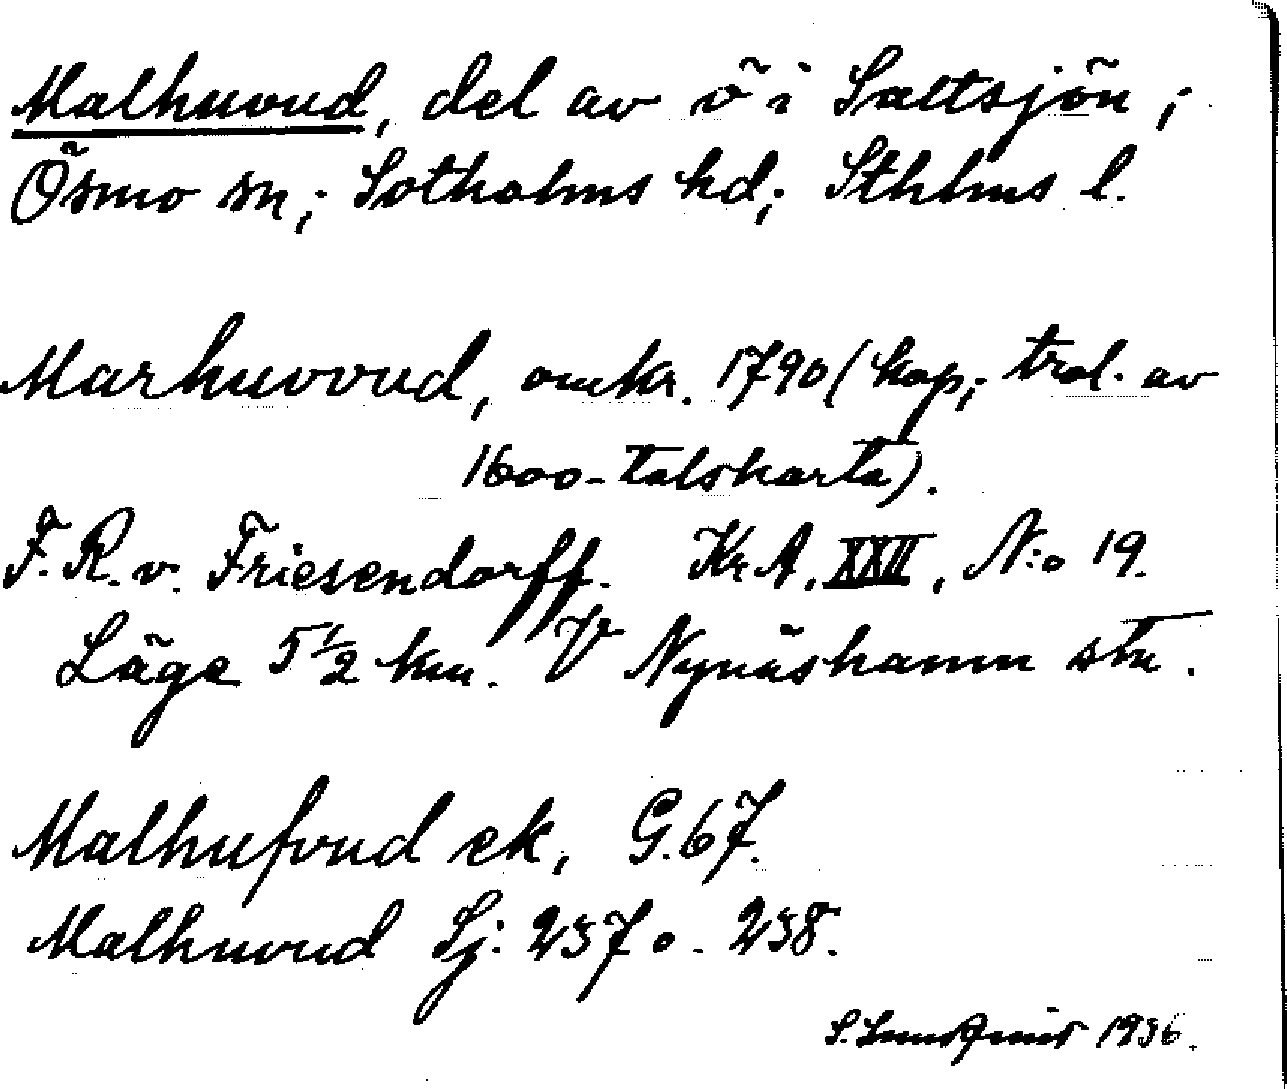 Malhuvud, del av ö i Saltsjön;
Ösmo sn; Sotholms hd; Sthlms l.
Marhuvvud, omkr. 1790 (kop; trol. av
1600-talskarta).
F. R. v. Friesendorff. Kr. A. XXII, N:o 19.
Läge 5 1/2 km. V Nynäshamn stn.
Malhufvud ek, G. 67.
Malhuvud Sj: 237 o. 238.
S. Lundqvist 1936.